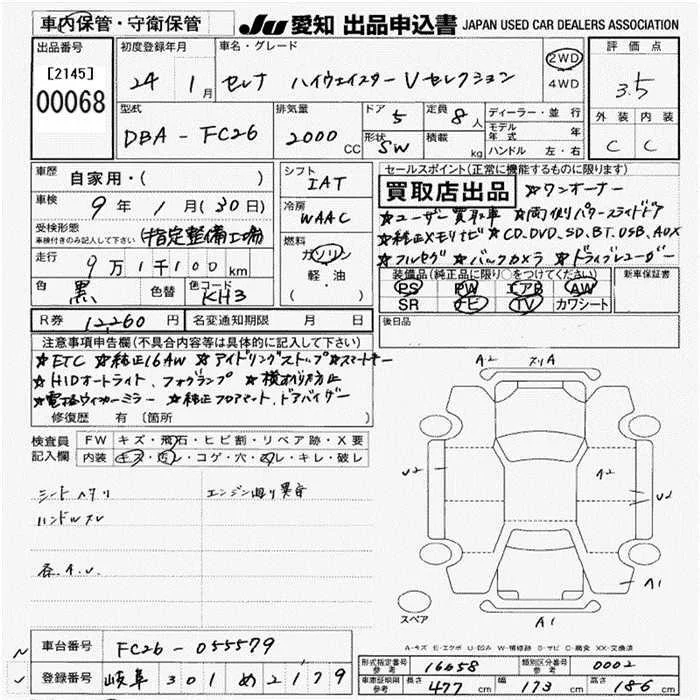 車内保管・守衛保管
JU 愛知 出品申込書 JAPAN USED CAR DEALERS ASSOCIATION
出品番号
[2145]
00068
初度登録年月
24 1月
車名・グレード
セレナ ハイウェイスター Vセレクション
2WD
4WD
評価点
3.5
外装 内装
C C
型式
DBA-FC26
排気量
2000 CC
ドア 5
定員 8人
形状 SW
積載 kg
ディーラー・並行
モデル年式 年
ハンドル 左・右
車歴 自家用・( )
車検 9年 1月(30日)
受検形態
車検付きのみ記入して下さい
(指定整備工場)
走行 9万1千100km
色 黒 色替 色コード KH3
シフト IAT
冷房 WAAC
燃料
ガソリン
軽・油
( )
セールスポイント(正常に機能するものに限ります)
買取店出品 ☆ワンオーナー
☆ユーザー買取車 ☆両側パワースライドドア
☆純正メモリナビ ☆CD,DVD,SD,BT,USB,AUX
☆フルセグ ☆バックカメラ ☆ドライブレコーダー
装備品(純正品に限り○をつけてください)
新車保証書
PS PW エアB AW
SR ナビ TV カワシート
後日品
R券 12260円 名変通知期限 月 日
注意事項申告欄(不具合内容等は具体的に記入して下さい)
☆ETC ☆純正16AW ☆アイドリングストップ ☆スマートキー
☆HIDオートライト、フォグランプ ☆横すべり防止
☆電格ウィンカーミラー ☆純正フロアマット、ドアバイザー
修復歴 有 〔箇所 〕
検査員記入欄
FW キズ・飛石・ヒビ割・リペア跡・X要
内装 キズ・汚レ・コゲ・穴・凹レ・キレ・破レ
シートヘタリ
エンジン廻り異音
ハンドルスレ
各A.U.
A2 スリA
U2
A2
U2
A1
A1
スペア
A-キズ E-エクボ U-凹み W-補修跡 S-サビ C-腐食 XX-交換済
車台番号 FC26-055579
登録番号 岐阜 301 め 2179
形式指定番号 参考 16658
類別区分番号 参考 0002
車庫証明用 参考 長さ 477cm 幅 173cm 高さ 186cm